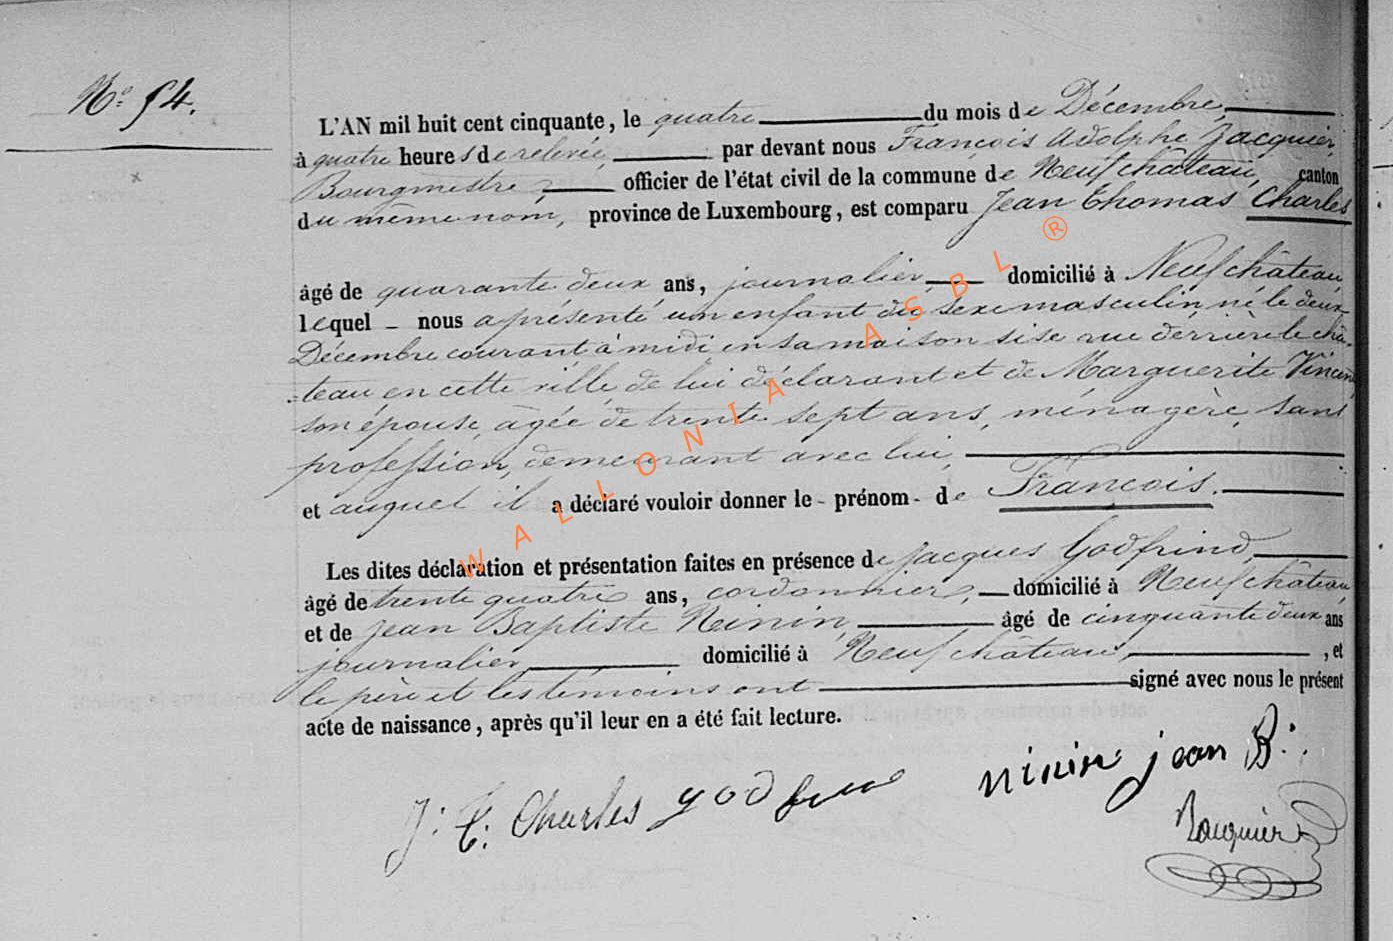 N.° 54.
L'AN mil huit cent cinquante, le quatre du mois de Décembre,
à quatre heures de relevée, par devant nous François Adolphe Jacquier,
Bourgmestre, officier de l'état civil de la commune de Neufchâteau, canton
du même nom, province de Luxembourg, est comparu Jean Thomas Charles
âgé de quarante deux ans, journalier, domicilié à Neufchâteau,
lequel nous a présenté un enfant du sexe masculin né le deux
Décembre courant à midi en sa maison sise rue derrière le châ-
teau, en cette ville, de lui déclarant et de Marguerite Vincent
son épouse, agée de trente sept ans, ménagère, sans
profession, demeurant avec lui,
et auquel il a déclaré vouloir donner le prénom de François.
Les dites déclaration et présentation faites en présence de Jacques Godfrind,
âgé de trente quatre ans, cordonnier, domicilié à Neufchâteau,
et de Jean Baptiste Ninin, âgé de cinquante deux ans
journalier, domicilié à Neufchâteau, , et
le père et les témoins ont signé avec nous le présent
acte de naissance, après qu'il leur en a été fait lecture.
J: T: Charles godfrind ninin jean B:
Jacquier
WALLONIA ASBL ®